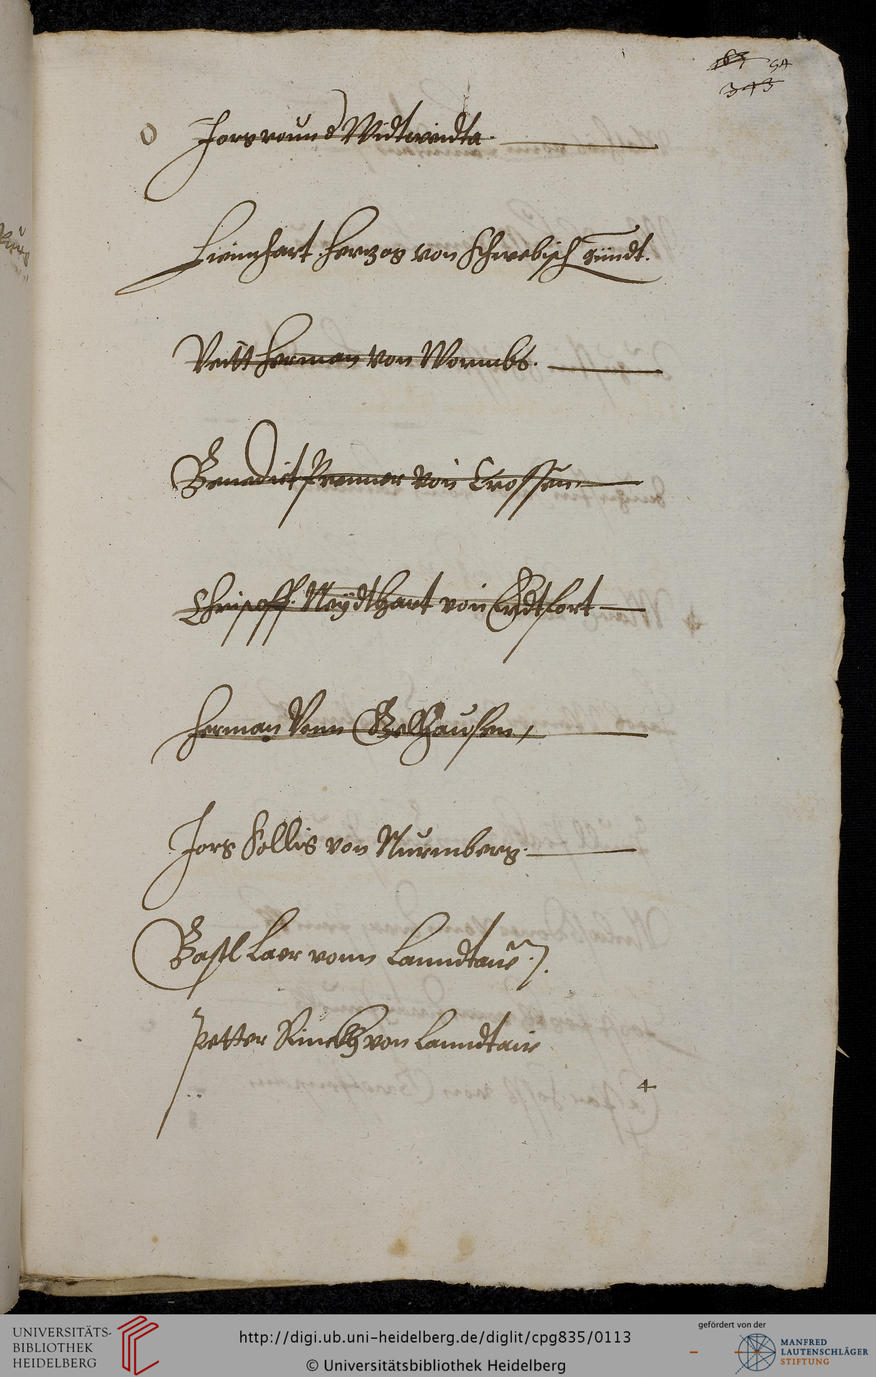 54
343
Jorg vound Widtwindta
Lienhart Herzog von Schwebisch gündt.
Veitt Herman von Wormbs.
Benedict Prenner von Crossen
Christoff Neydthart von Erdtfort
Herman Vonn Gelhausen
Jorg Sollis von Nurmberg
Bastl Laer vonn Lanndtaue
Petter Rineckh von Lanndtaw
4
UNIVERSITÄTS-
BIBLIOTHEK
HEIDELBERG
http://digi.ub.uni-heidelberg.de/diglit/cpg835/0113
© Universitätsbibliothek Heidelberg
gefördert von der
MANFRED
LAUTENSCHLÄGER
STIFTUNG